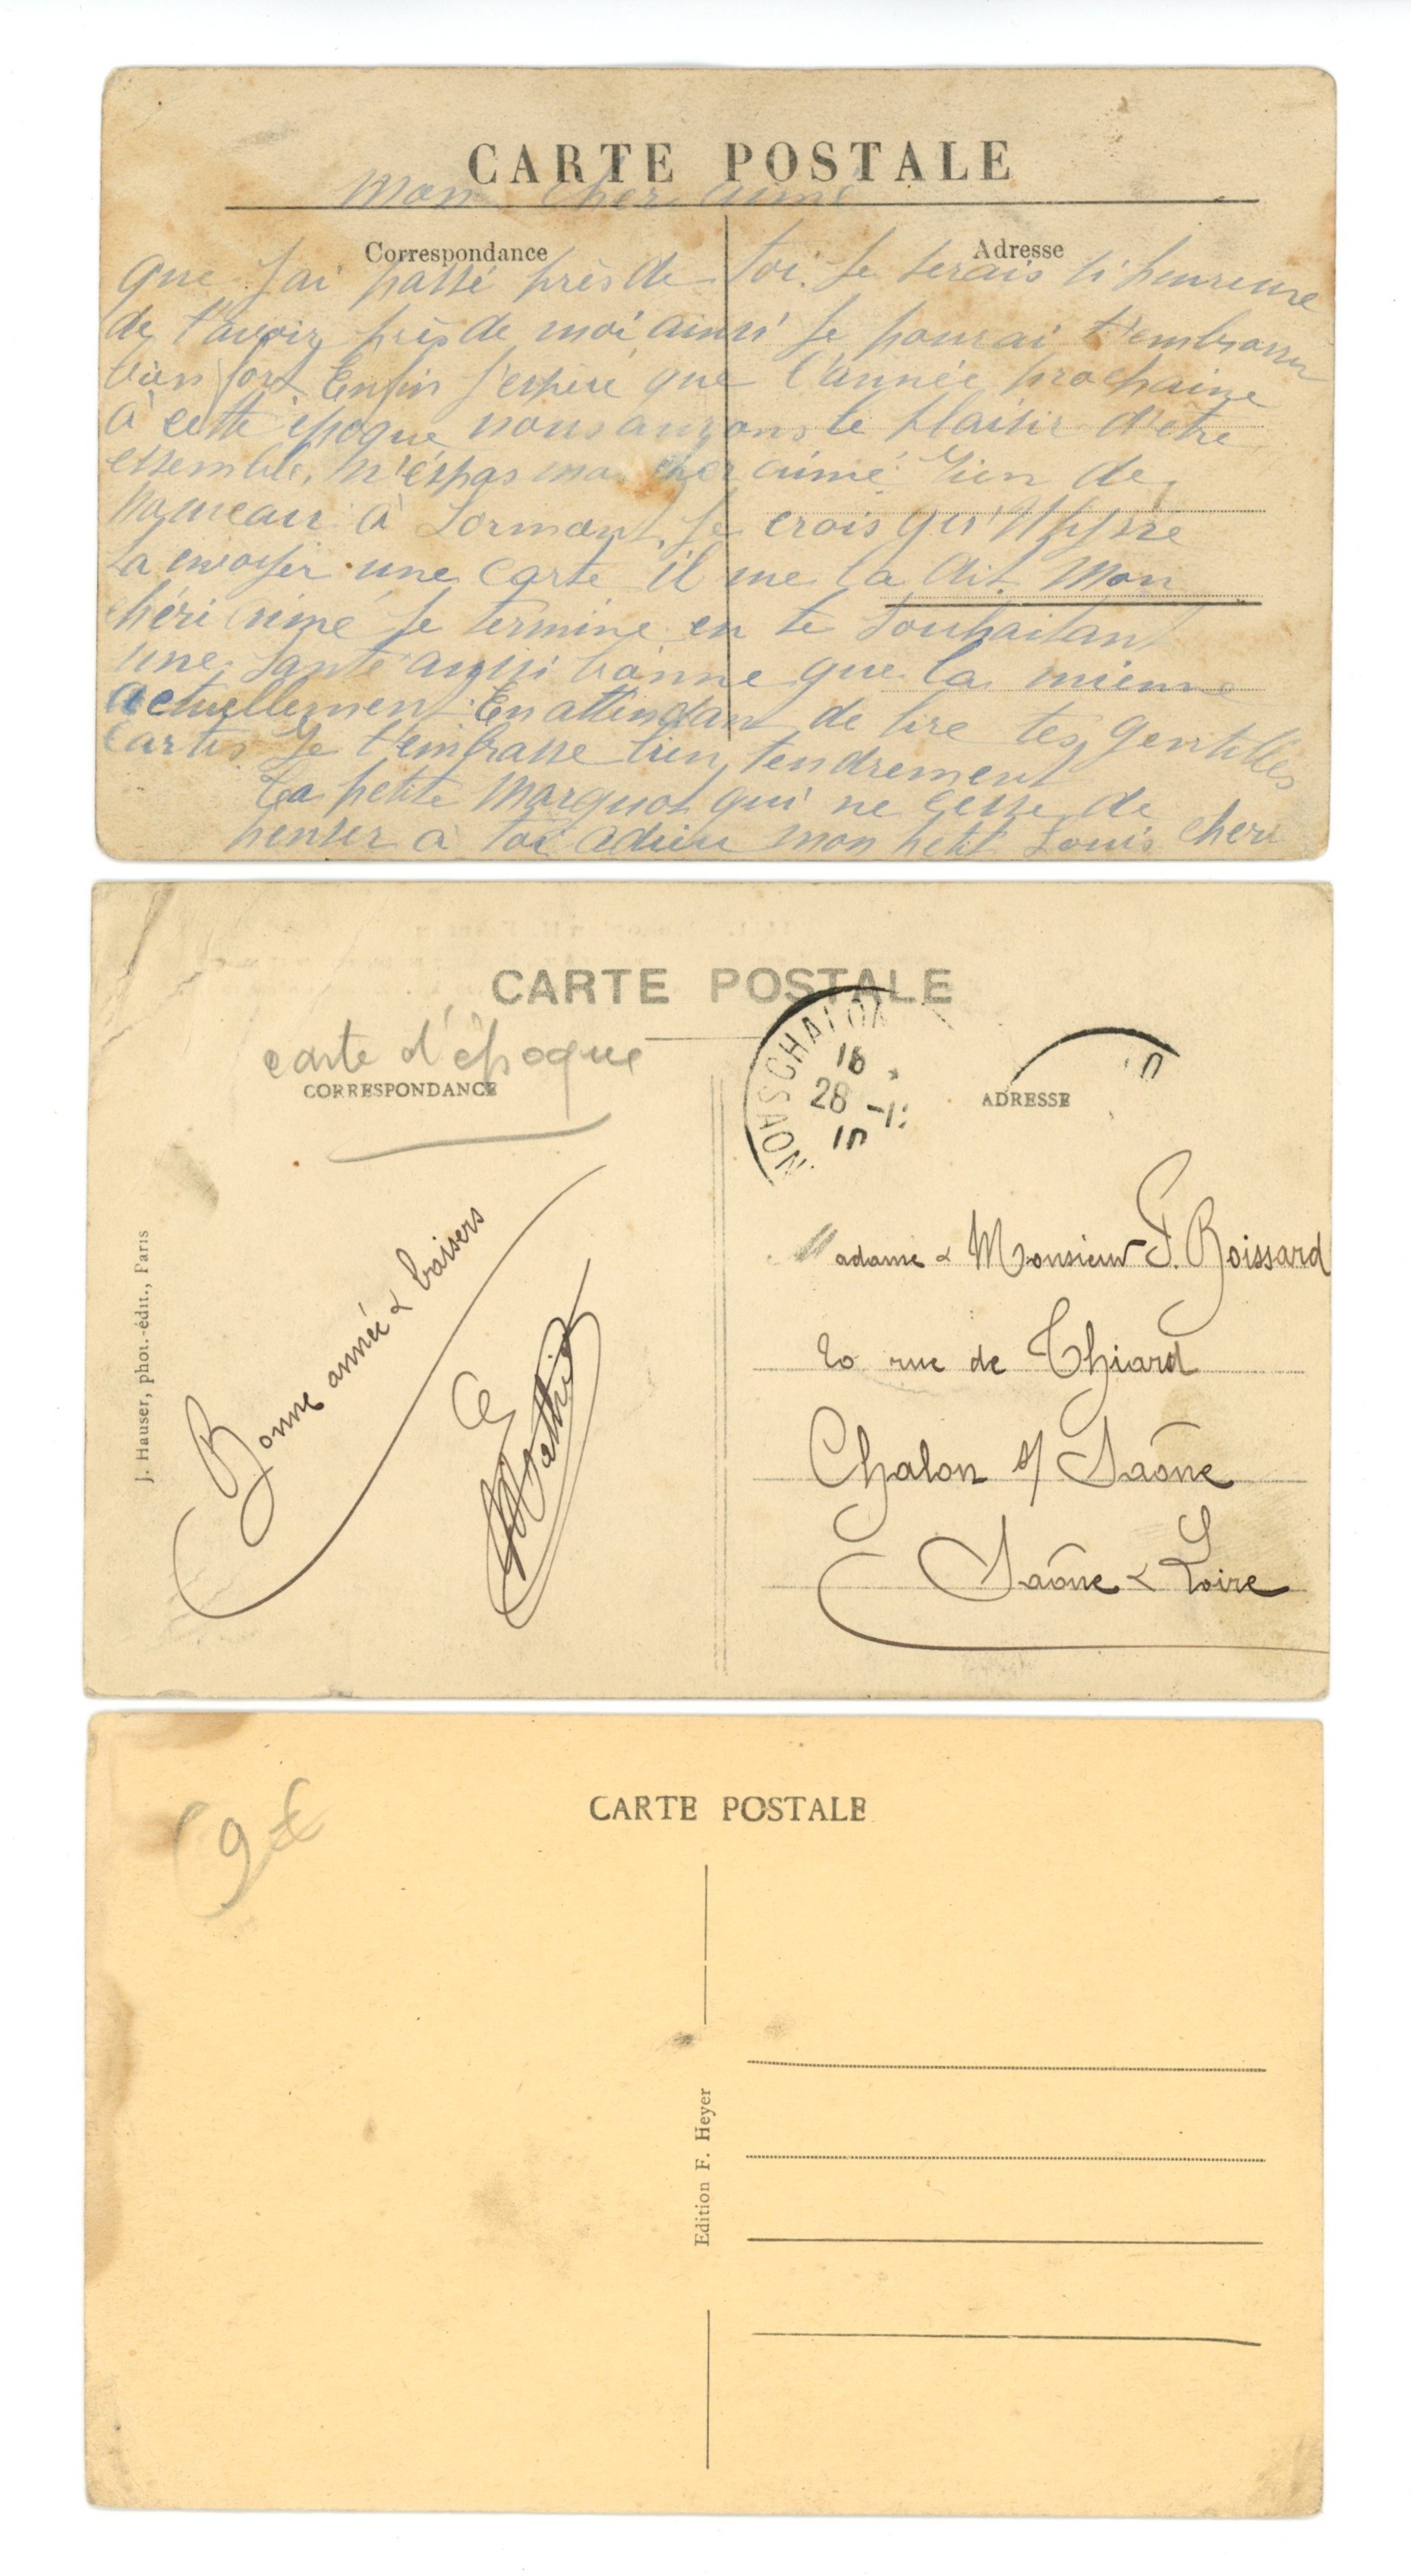 CARTE POSTALE
Mon cher aimé
Correspondance
Adresse
que j'ai passé près de toi. Je serais si heureuse
de t'avoir près de moi ainsi je pourai t'embrasser
bien fort. Enfin j'espère que l'année prochaine
à cette époque nous aurons le plaisir d'etre
essemble, n'éspas mon cher aimé. Rien de
nouveau à Lormont. Je crois qu'Ulysse
ta envoyer une carte il me la dit. Mon
chéri aimé je termine en te souhaitant
une santé aussi bonne que la mienne
actuellement. En attendant de lire tes gentilles
cartes je t'embrasse bien tendrement
Ta petite Marguot qui ne cesse de
penser à toi adieu mon petit Louis cheri
CARTE POSTALE
carte d'époque
CORRESPONDANCE
ADRESSE
CHALON
16
28 -1
10
J. Hauser, phot.-édit., Paris
Bonne année & baisers
Madame & Monsieur P. Boissard
20 rue de Thiard
Chalon s/ Saône
Saône & Loire
CARTE POSTALE
9€
Edition F. Heyer